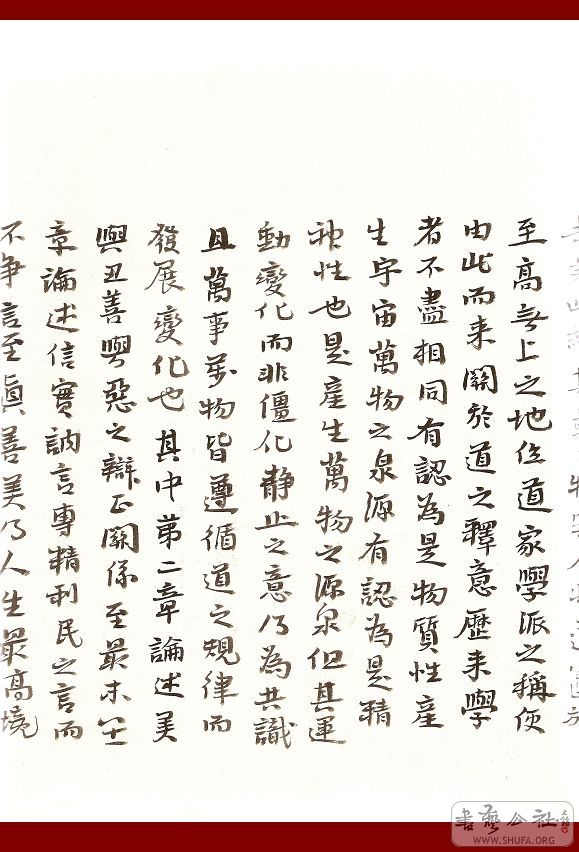 至高無上之地位道家學派之稱便
由此而来關於道之釋意歷来學
者不盡相同有認為是物質性產
生宇宙萬物之泉源有認為是精
神性也是產生萬物之源泉但其運
動變化而非僵化靜止之意乃為共識
且萬事萬物皆遵循道之規律而
發展變化也其中第二章論述美
與丑善與惡之辯正關係至最末
章論述信實訥言專精利民之言而
不争言至真善美乃人生最高境
書藝公社
WWW.SHUFA.ORG